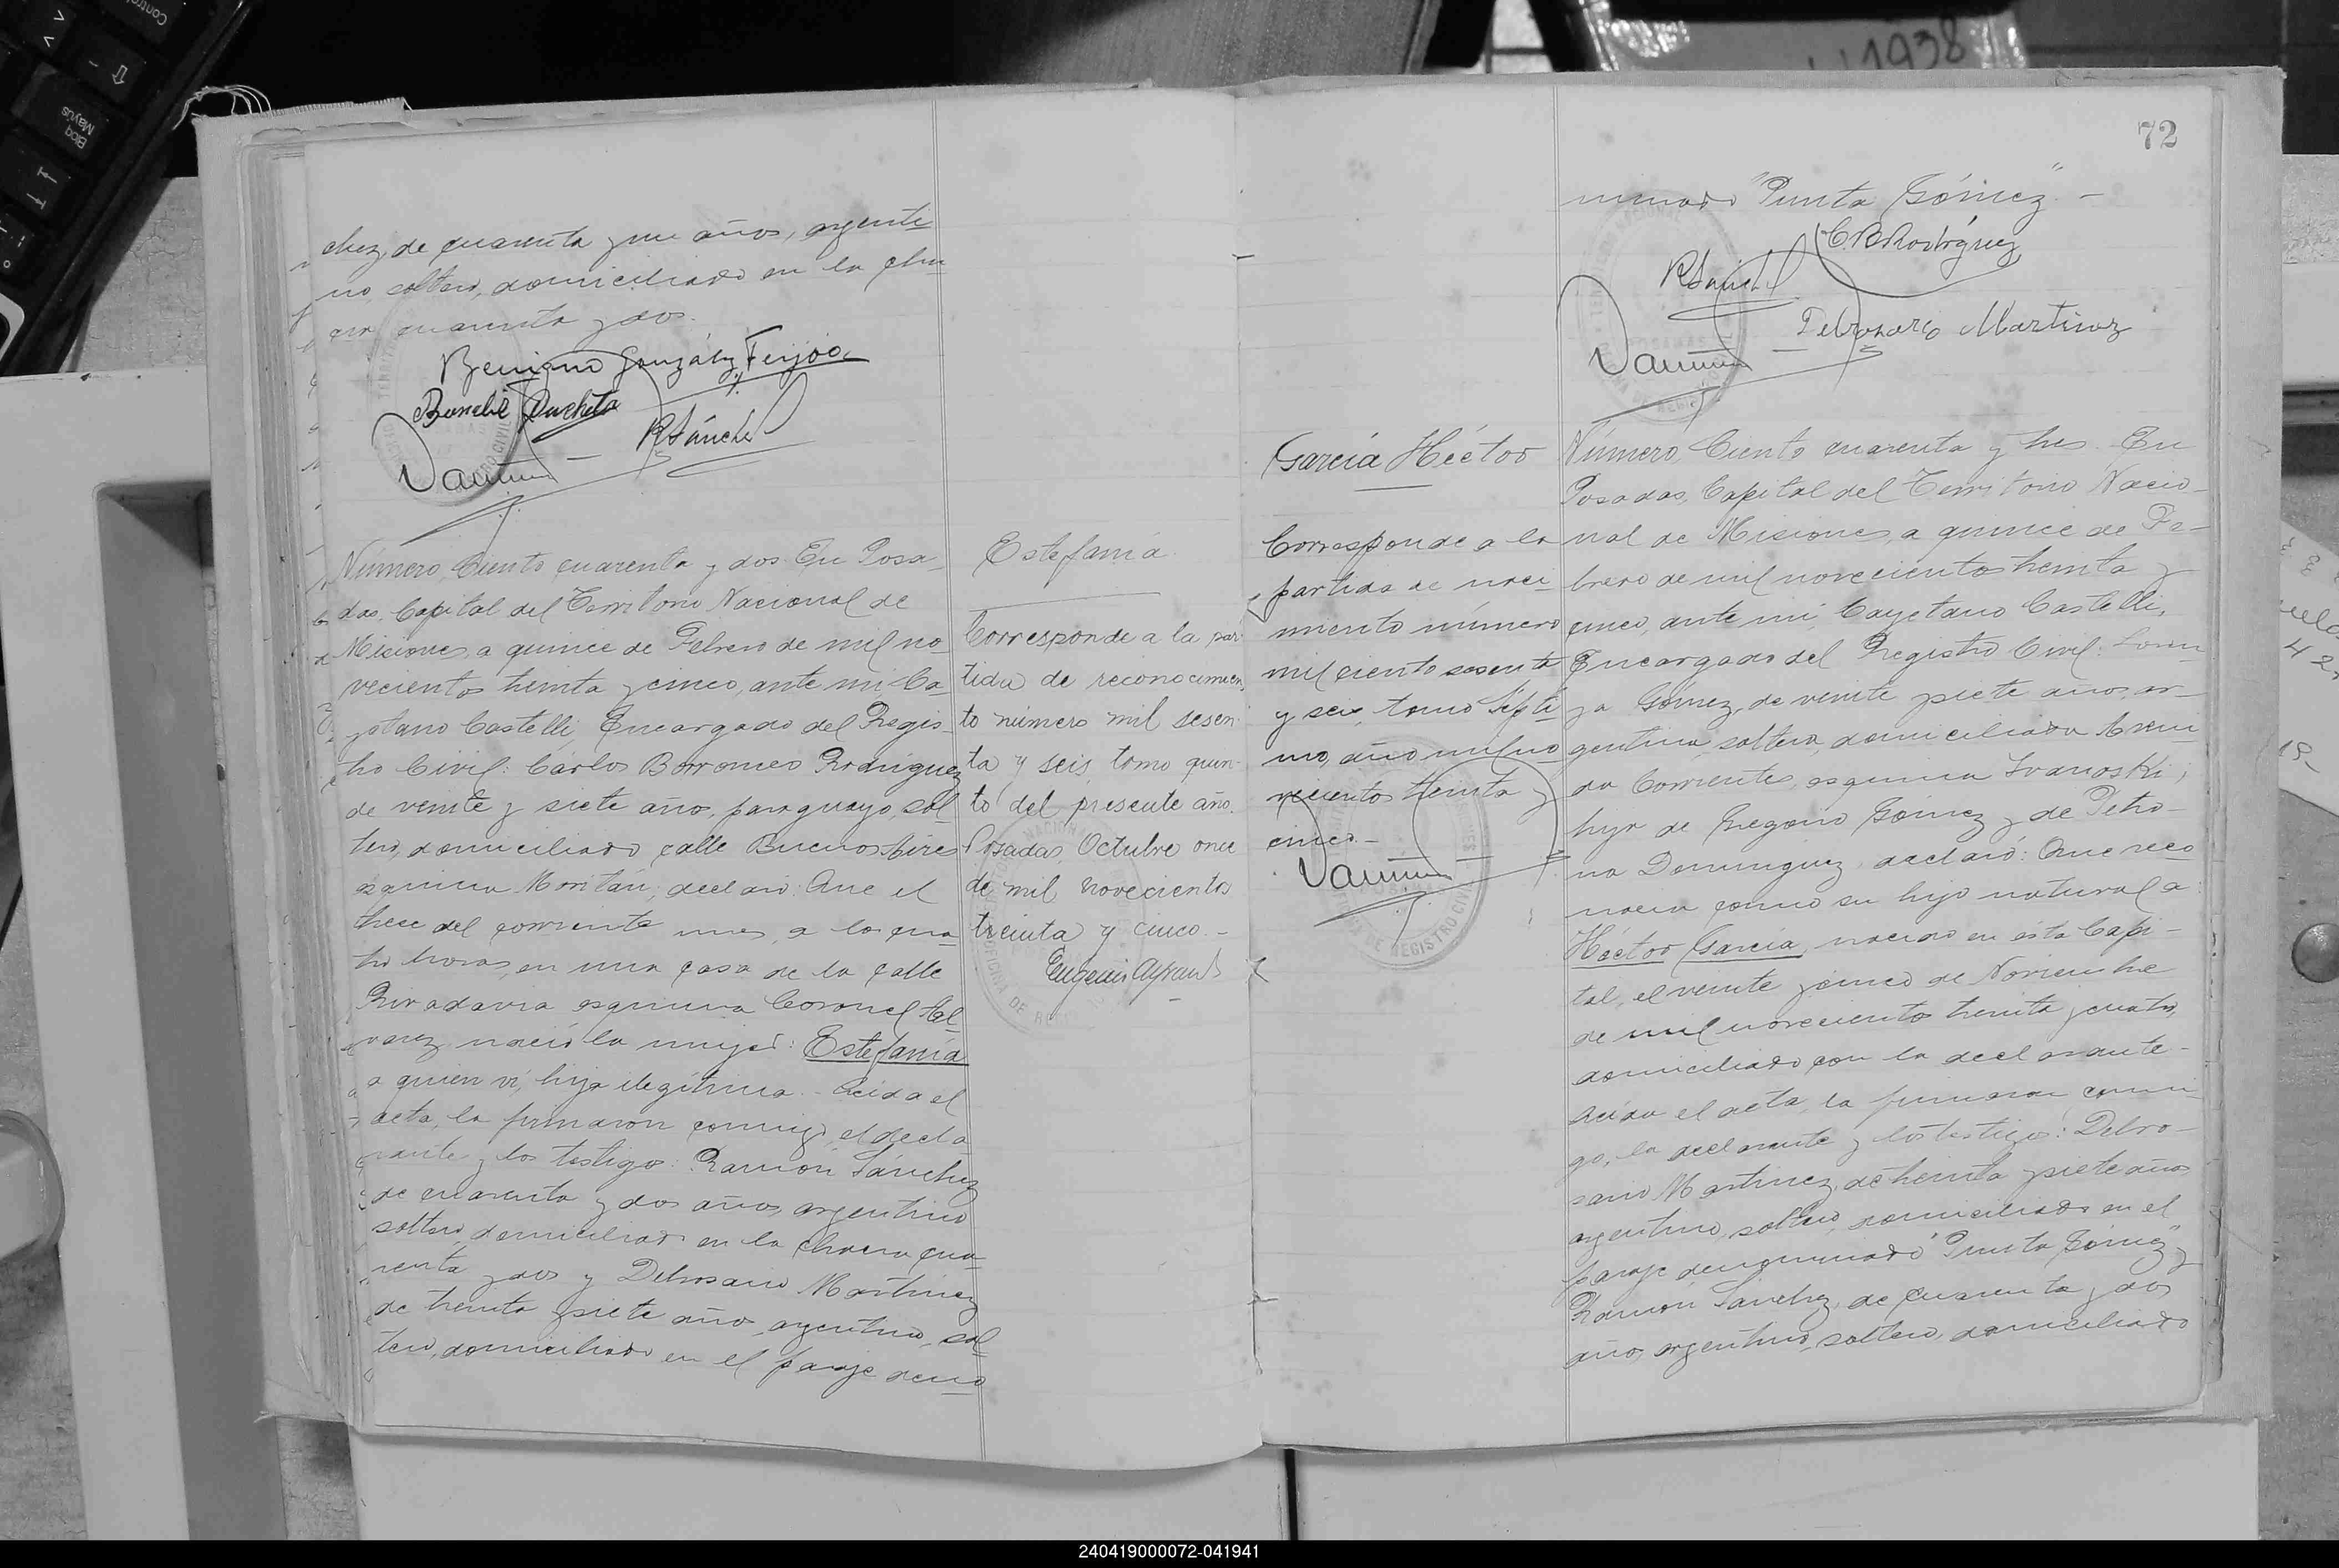 chez, de cuarenta y un años, argenti
no, soltero, domiciliado en la cha
cra cuarenta y dos.
Benigno González Feijoo
R Sánchez
Número, Ciento cuarenta y dos. En Posa
das, Capital del Territorio Nacional de
Misiones, a quince de Febrero de mil no
vecientos treinta y cinco, ante mi Ca
yetano Castelli, Encargado del Regis
tro Civil: Carlos Borromeo Rodríguez
de veinte y siete años, paraguayo, sol
tero, domiciliado calle Buenos Aires
esquina Moritán, declaró: Que el
trece del corriente mes, a las cua
tro horas, en una casa de la calle
Rivadavia esquina Coronel Al
varez nació la mujer: Estefanía
a quien ví, hija ilegítima. - Leida el
acta, la firmaron conmigo, el decla
rante y los testigos: Ramón Sánchez
de cuarenta y dos años, argentino
soltero, domiciliado en la chacra cua
renta y dos y Delrosario Martínez
de treinta y siete años, argentino, sol
tero, domiciliado en el paraje deno
Estefanía
Corresponde a la par
tida de reconocimien
to número mil sesen
ta y seis, tomo quin
to del presente año.
Posadas, Octubre once
de mil novecientos
treinta y cinco. -
72
minado "Punta Gómez" -
C. B. Rodríguez
R Sánchez
Delrosario Martinez
García Héctor
Corresponde a la
partida de naci
miento número
mil ciento sesenta
y seis, tomo Sépti
mo, año mil no
vecientos treinta y
cinco. -
Número, Ciento cuarenta y tres. En
Posadas, Capital del Territorio Nacio
nal de Misiones, a quince de Fe
brero de mil novecientos treinta y
cinco, ante mi Cayetano Castelli,
Encargado del Registro Civil: Loren
za Gómez, de veinte y siete años, ar
gentina, soltera, domiciliada Aveni
da Corrientes, esquina Ivanoski,
hija de Gregorio Gómez y de Petro
na Dominguez, declaró: Que reco
nocía como su hijo natural a:
Héctor García, nacido en esta Capi
tal, el veinte y cinco de Noviembre
de mil novecientos treinta y cuatro,
domiciliado con la declarante -
Leida el acta, la firmaron conmi
go, la declarante y los testigos: Delro
sario Martinez, de treinta y siete años
argentino, soltero, domiciliado en el
paraje denominado "Punta Gómez" y
Ramón Sánchez, de cuarenta y dos
años, argentino, soltero, domiciliado
240419000072-041941